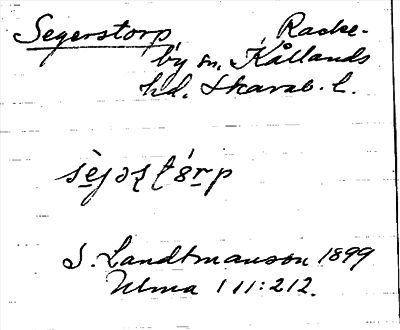 Segerstorp, Racke-
by sn. Kållands
hd. Skarab. l.
S. Landtmanson 1899
Ulma 111:212.